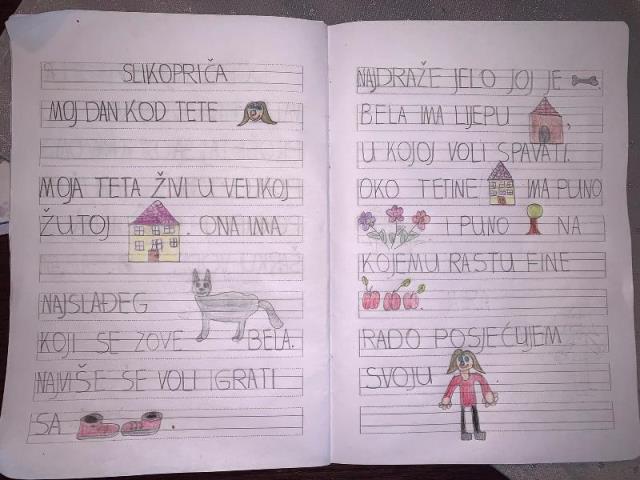 SLIKOPRIČA
MOJ DAN KOD TETE
MOJA TETA ŽIVI U VELIKOJ
ŽUTOJ . ONA IMA
NAJSLAĐEG
KOJI SE ZOVE BELA.
NAJVIŠE SE VOLI IGRATI
SA
NAJDRAŽE JELO JOJ JE
BELA IMA LIJEPU ,
U KOJOJ VOLI SPAVATI.
OKO TETINE IMA PUNO
I PUNO NA
KOJEMU RASTU FINE
.
RADO POSJEĆUJEM
SVOJU